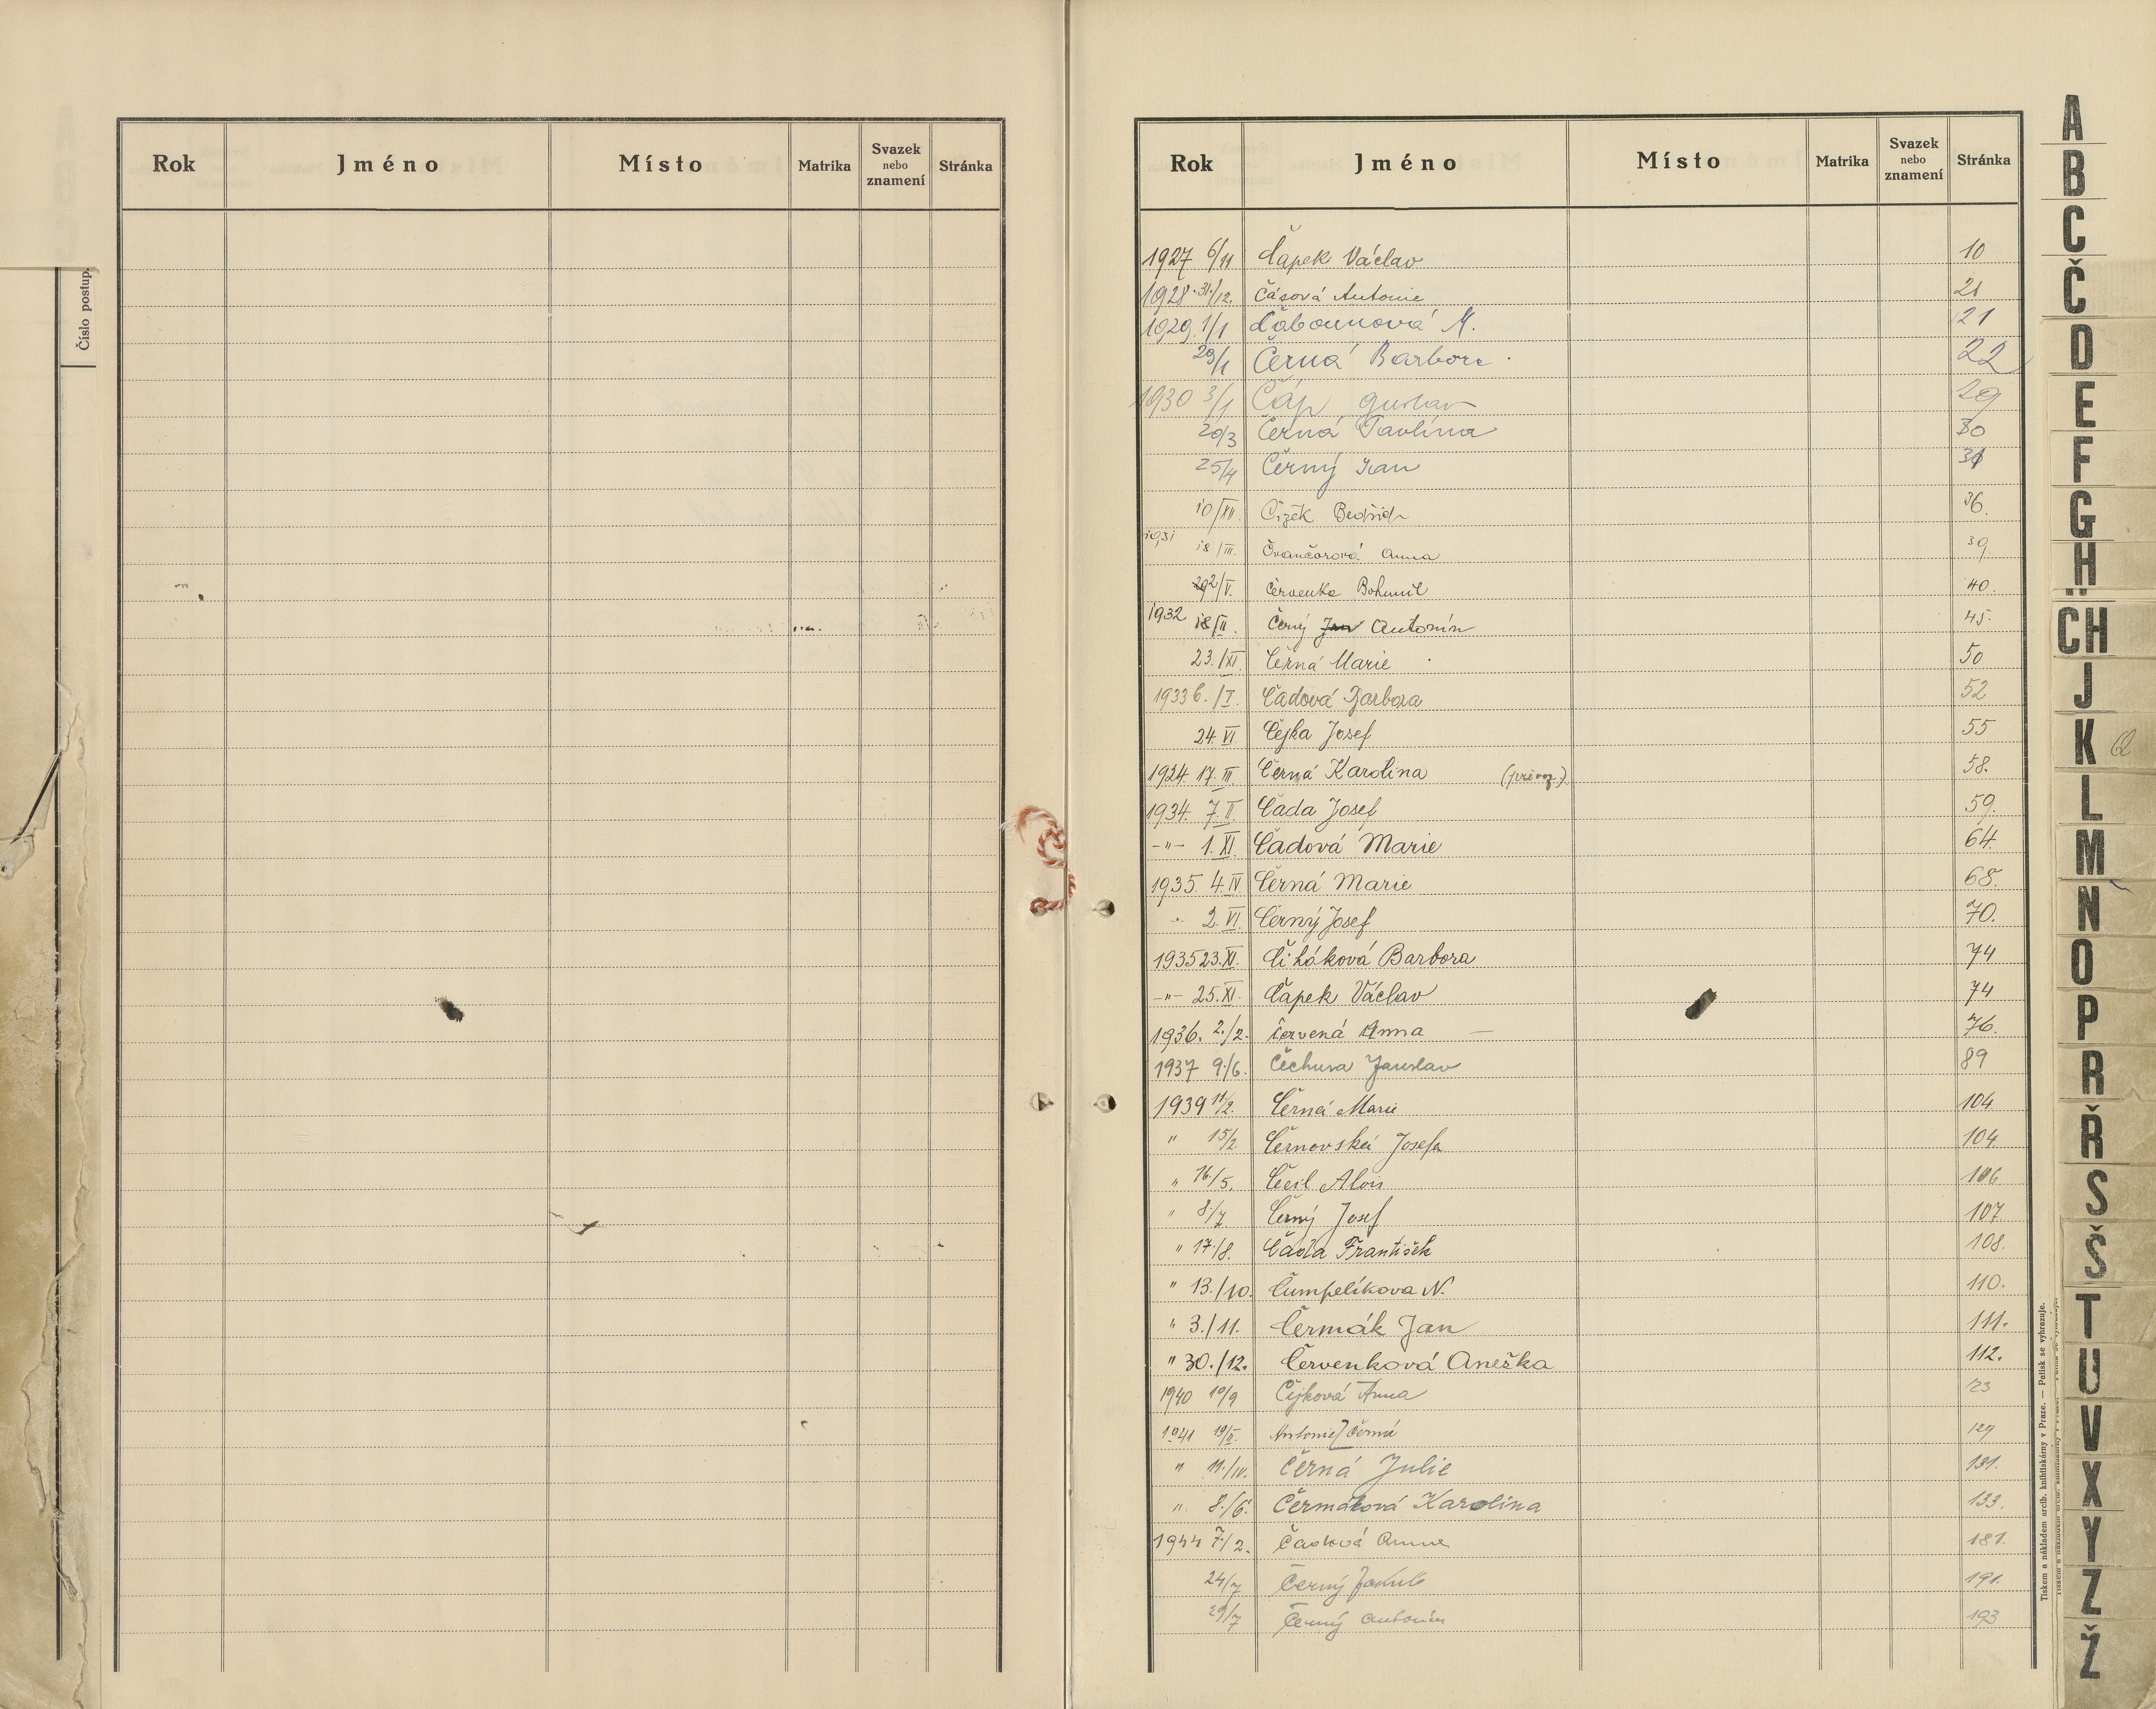 Číslo postup.
Rok Jméno Místo Matrika Svazek nebo znamení Stránka
Rok Jméno Místo Matrika Svazek nebo znamení Stránka
1927 6/11 Čapek Václav 10
1928 31./12. Čásová Antonie 21
1929 1/1 Čabounová M. 21
29/1 Černá Barbora 22
1930 3/1 Čáp Gustav 29
20/3 Černá Pavlína 30
25/4 Černý Jan 31
10/XII. Čížek Bedřich 36.
1931 18/III. Čvančorová Anna 39.
2/V. Červenka Bohumil 40.
1932 18/II. Černý Jan Antonín 45.
23./XI. Černá Marie 50
1933 6./I. Čadová Barbora 52
24. VI Čejka Josef 55
1924. 17. III. Černá Karolina 58.
1934. 7. II. Čada Josef 59.
-"- 1. XI. Čadová Marie 64.
1935. 4. IV. Černá Marie 68.
2. VI. Černý Josef 70.
1935 23. XI. Čiháková Barbora 74
-"- 25. XI. Čapek Václav 74
1936. 2./2. Červená Anna 76.
1937 9./6. Čechura Jaroslav 89
1939 11/2. Černá Marie 104
" 15/2. Černovská Josefa 104
" 16/5. Alois 106
" 8/7 Černý Josef 107
" 17./8. Čada František 108.
" 13./10. Čumpelíkova N. 110.
" 3./11. Čermák Jan 111.
" 30./12. Červenková Anežka 112.
1940 10/9 Čejková Anna 123
1941 19/II. Antonie Černá 129
" 11./IV. Černá Julie 131.
" 8./6. Čermáková Karolina 133.
1944 7./2. Čadová Anna 181.
24/7 Černý Jakub 191.
29/7 Černý Antonín 193
A
B
C
Č
D
E
F
G
H
CH
J
K Q
L
M
N
O
P
R
Ř
S
Š
T
U
V
X
Y
Z
Ž
Tiskem a nákladem arcib. knihtiskárny v Praze. — Patisk se vyhrazuje.